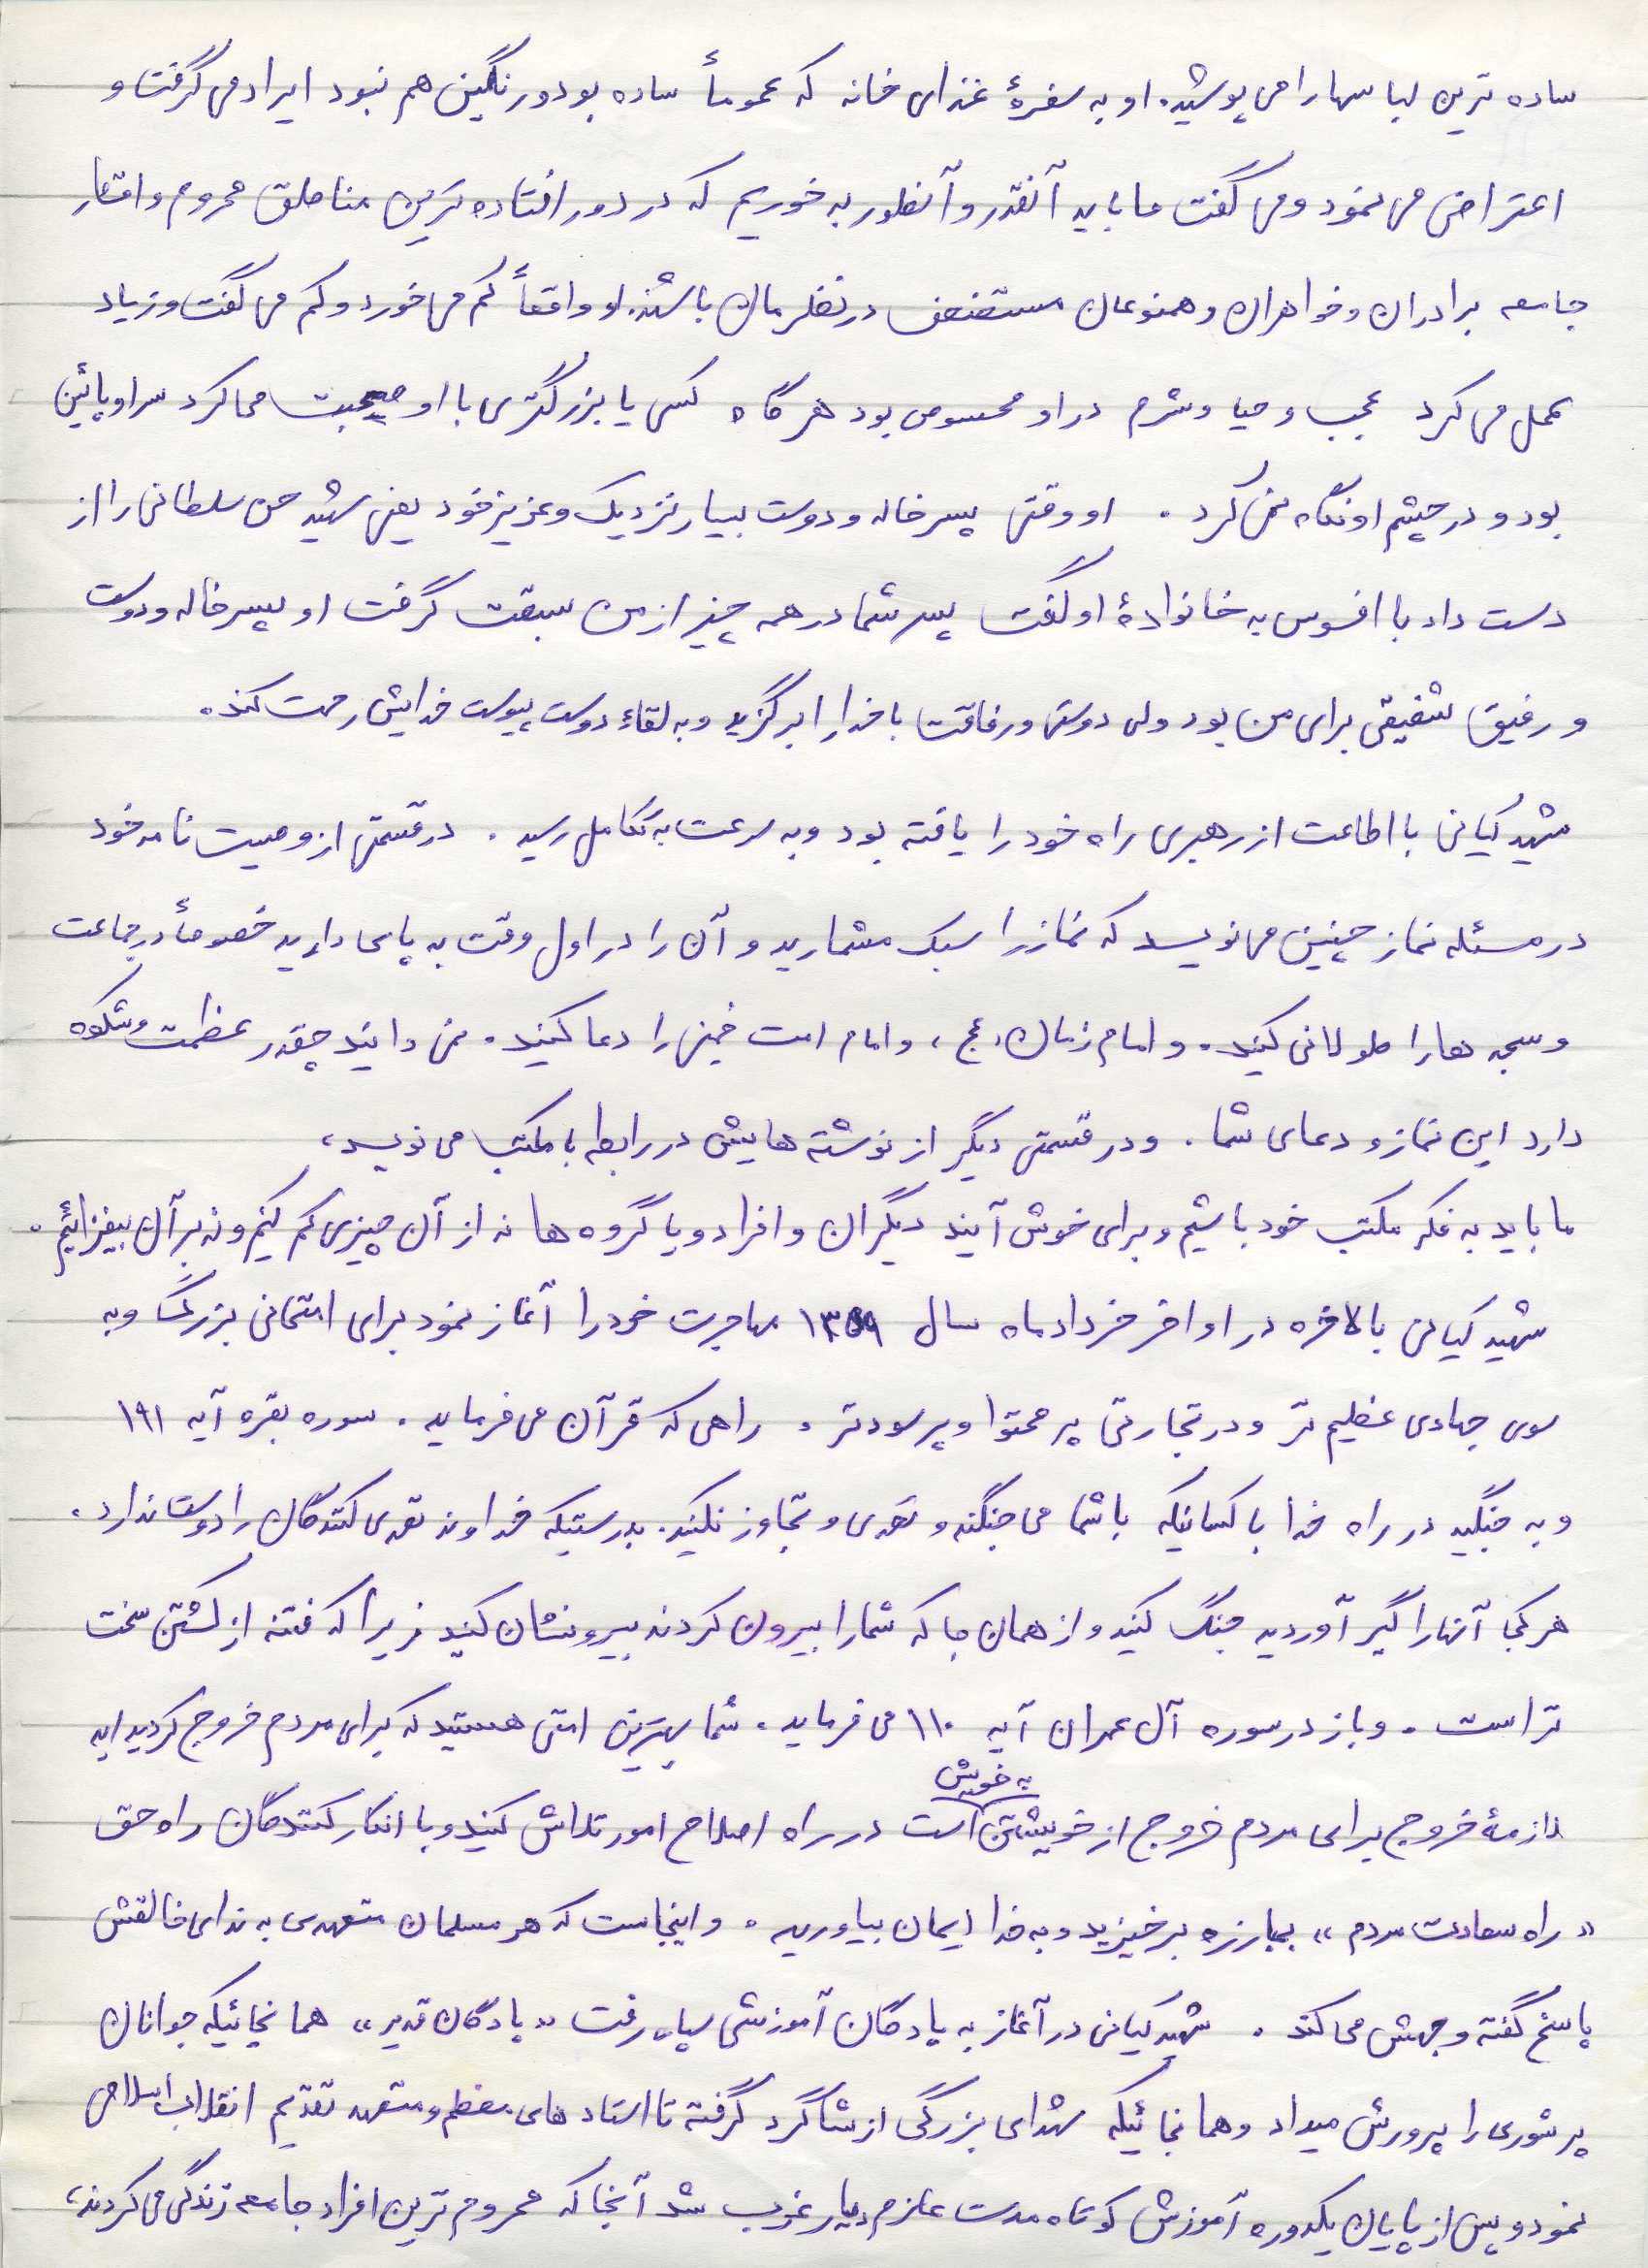 ساده ترین لباسها را می پوشید. او به سفرهٔ غذای خانه که عموماً ساده بود و رنگین هم نبود ایراد می گرفت و
اعتراض می نمود و می گفت ما باید آنقدر و آنطور به خوریم که در دور افتاده ترین مناطق محروم و اقشار
جامعه برادران و خواهران و همنوعان مستضعف در نظرمان باشند. او واقعاً کم می خورد و کم می گفت و زیاد
عمل می کرد عجب و حیا و شرم در او محسوس بود هرگاه کسی یا بزرگتری با او صحبت می کرد سر او پائین
بود و در چشم او نگاه نمی کرد . او وقتی پسر خاله و دوست بسیار نزدیک و عزیز خود یعنی شهید حسن سلطانی را از
دست داد با افسوس به خانوادهٔ او گفت پسر شما در همه چیز از من سبقت گرفت او پسر خاله و دوست
و رفیق شفیقی برای من بود ولی دوستی و رفاقت با خدا را برگزید و به لقاء دوست پیوست خدایش رحمت کند.
شهید کیانی با اطاعت از رهبری راه خود را یافته بود و به سرعت به تکامل رسید . در قسمتی از وصیت نامه خود
در مسئله نماز چنین می نویسد که نماز را سبک مشمارید و آن را در اول وقت به پای دارید خصوصاً در جماعت
و سجده ها را طولانی کنید. و امام زمان، عج، و امام امت خمینی را دعا کنید. نمی دانید چقدر عظمت و شکوه
دارد این نماز و دعای شما . و در قسمتی دیگر از نوشته هایش در رابطه با مکتب می نویسد،
ما باید به فکر مکتب خود باشیم و برای خوش آیند دیگران و افراد و یا گروه ها نه از آن چیزی کم کنیم و نه بر آن بیفزائیم.
شهید کیانی بالاخره در اواخر خرداد ماه سال ۱۳۵۹ مهاجرت خود را آغاز نمود برای امتحانی بزرگ و به
سوی جهادی عظیم تر و در تجارتی پر محتوا و پر سودتر . راهی که قرآن می فرماید . سوره بقره آیه ۱۹۱
و به جنگید در راه خدا با کسانیکه با شما می جنگند و تعدی و تجاوز نکنید. بدرستیکه خداوند تعدی کنندگان را دوست ندارد.
هر کجا آنها را گیر آوردید جنگ کنید و از همان جا که شما را بیرون کردند بیرونشان کنید زیرا که فتنه از کشتن سخت
تر است . و باز در سوره آل عمران آیه ۱۱۰ می فرماید . شما بهترین امتی هستید که برای مردم خروج کردید اید
به خویش
لازمهٔ خروج برای مردم خروج از خویشتن است در راه اصلاح امور تلاش کنید و با انکار کنندگان راه حق
«راه سعادت مردم» بمبارزه برخیزید و به خدا ایمان بیاورید . و اینجاست که هر مسلمان متعهدی به ندای خالقش
پاسخ گفته و جهش می کند . شهید کیانی در آغاز به پادگان آموزشی سپاه رفت «پادگان قدیر» همانجائیکه جوانان
پر شوری را پرورش میداد و همانجائیکه شهدای بزرگی از شاگرد گرفته تا استاد های معظم و متعهد تقدیم انقلاب اسلامی
نمود و پس از پایان یکدوره آموزش کوتاه مدت عازم دیار غرب شد آنجا که محروم ترین افراد جامعه زندگی می کردند،